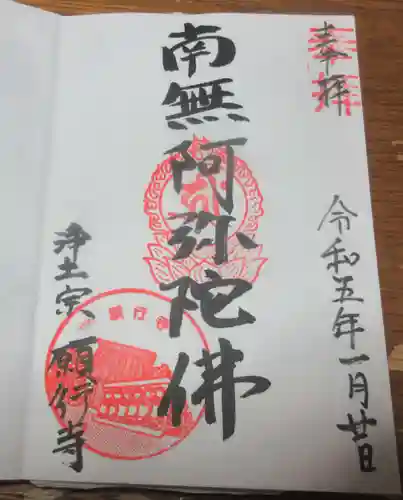 奉拝
令和五年一月廿日
南無阿弥陀佛
浄土宗 願行寺